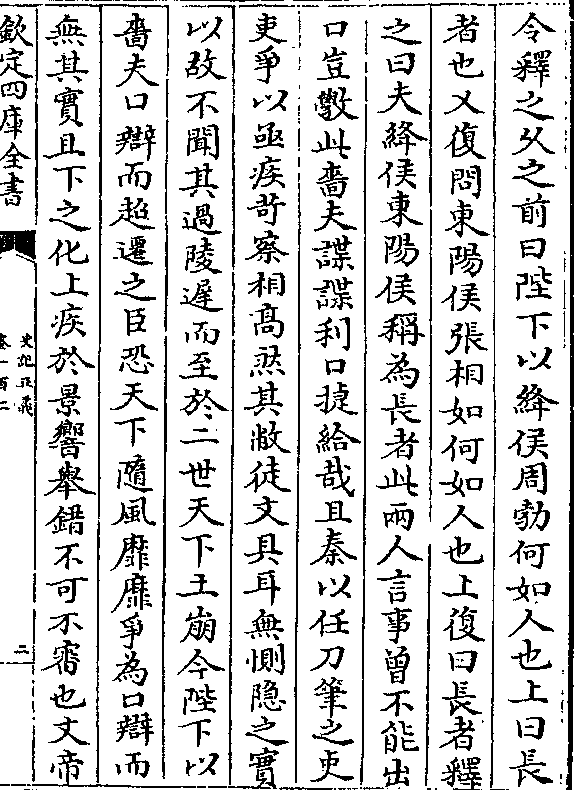 令釋之乆之前曰陛下以絳侯周勃何如人也上曰長
者也又復問東陽侯張相如何如人也上復曰長者釋
之曰夫絳侯東陽侯稱為長者此兩人言事曾不能出
口豈斆此嗇夫諜諜利口㨗給哉且秦以任刀筆之吏
吏爭以亟疾苛察相髙然其敝徒文具耳無惻隠之實
以故不聞其過陵遲而至於二世天下土崩今陛下以
嗇夫口辯而超遷之臣恐天下隨風靡靡爭為口辯而
無其實且下之化上疾於景響舉錯不可不審也文帝
欽定四庫全書
史記正義
卷一百二
二